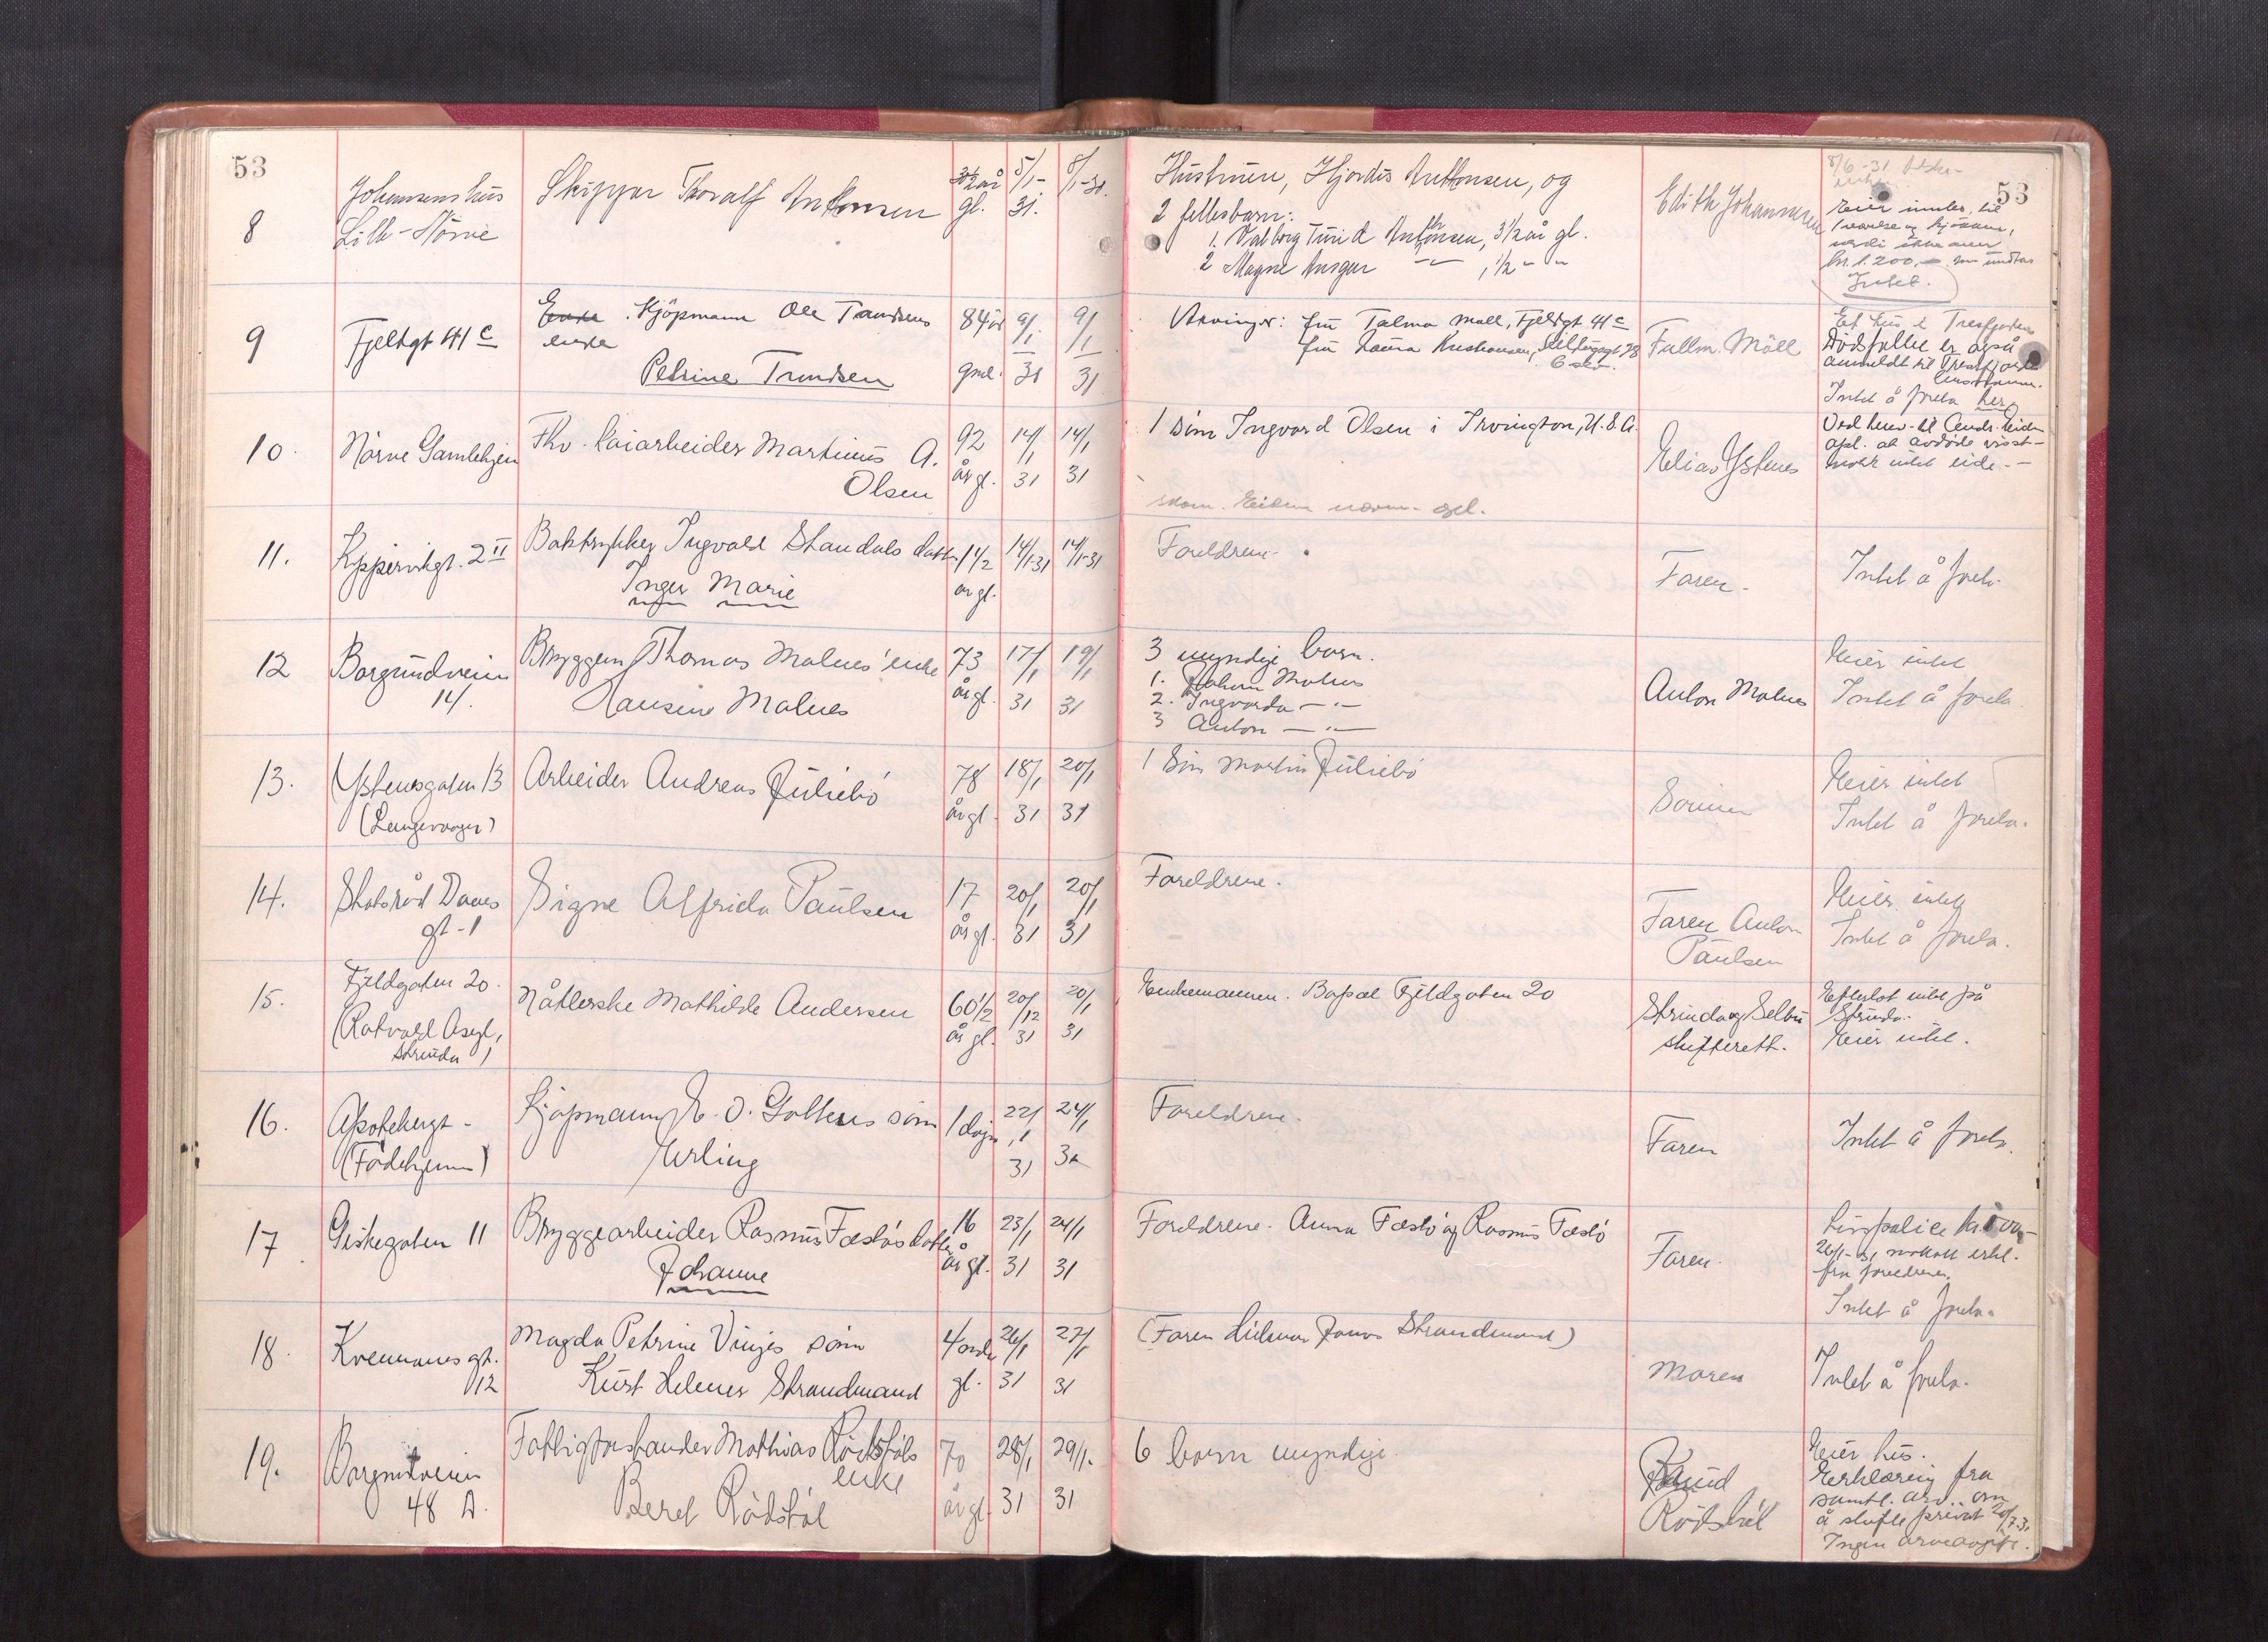 53
53
8
Johansenshus
Lille-Nörve
Skipper Thoralf Antonsen
32 år
gl.
5/1-
31.
8/1-31.
Hustruen, Hjördis Antonsen, og
2 fellesbarn:
1. Valborg Turid Antonsen, 3 1/2 år gl.
2 Magne Ansgar -"- , 1/2 - "
Edith Johannsen
8/6-31
Eier innbo til
1 værelse og kjökken,
verdi ikke over
kr. 1.200,-
Intet.
9
Fjeldgt 41 c
Enke. Kjöpmann Ole Tomdsens
enke
Petrine Trondsen
84 år
gml.
9/1
31
9/1
31
Arvinger: fru Talma Moll, Fjeldgt 41 c
fru Laura Kristiansen,
Oslo.
Fullm. Möll
Et hus i Tresfjorden
Dödsfallet er også
anmeldt til Tresfjorden
lensmann.
Intet å foreta her.
10.
Nörve Gamlehjem
Fhv. kaiarbeider Martinus A.
Olsen
92
år gl.
14/1
31
14/1
31
1 sön Ingvard Olsen i Irvington, U.S.A.
Elias Ystenes
Ved henv. til Andr. Eiden
opl. at avdöde visst-
nok intet eide. -
11.
Kippervikgt. 2 II
Boktrykker Ingvald Standals datter
Inger Marie
1 1/2
år gl.
14/1-31
14/1-31
Foreldrene.
Faren.
Intet å foreta.
12
Borgundveien
14.
Bryggem. Thomas Malnes' enke
Hansine Malnes
73
år gl.
17/1
31
19/1
31
3 myndige barn.
1. Johan Malnes
2. Ingvarda -"-
3 Anton -"-
Anton Malnes
Eier intet
Intet å foreta.
13.
Ystenesgaten 13
(Langevaagen)
Arbeider Andreas Juliebö
78
år gl.
18/1
31
20/1
31
1 Sön Martin Juliebö
Sönnen
Eier intet
Intet å foreta.
14.
Statsråd Daaes
gt-1
Signe Alfrida Paulsen
17
år gl.
20/1
31
20/1
31
Foreldrene.
Faren Anton
Paulsen
Eier intet
Intet å foreta.
15.
Fjeldgaten 20.
(Rotvold Asyl,
Strinda)
Nåtlerske Mathilde Andersen
60 1/2
år gl.
20/12
31
20/1
31
Enkemannen. Bopæl Fjeldgaten 20
Strinda og Selbu
skifterett.
Efterlot intet på
Strinda.
Eier intet.
16.
Apotekergt.
(Födehjem)
Kjöpmann K. O. Golten's sönn
Erling
1 dögn
22/1
31
24/1
31
Foreldrene.
Faren
Intet å foreta.
17.
Giskegaten 11
Bryggearbeider Rasmus Fæstös datter
Johanne
16
år gl.
23/1
31
24/1
31
Foreldrene. Anna Fæstö og Rasmus Fæstö
Faren.
Livspolice kr.
26/1-31 mottatt erkl.
fra foreldrene.
Intet å foreta.
18.
Kvennanesgt.
12
Magda Petrine Vinjes sönn
Kurt Helmer Strandmand
4 mdr
gl.
26/1
31
27/1
31
(Faren Hilmar Jonas Strandmand)
Moren
Intet å foreta.
19.
Borgundveien
48 A.
Fattigforstander Mathias Rödstöls
enke
Beret Rödstöl
70
år gl.
28/1
31
29/1.
31
6 barn myndige.
Knud
Rödstöl
Eier hus.
Erklæring fra
samtl. arv. om
å skifte privat 20/7-31
Ingen arveavgift.